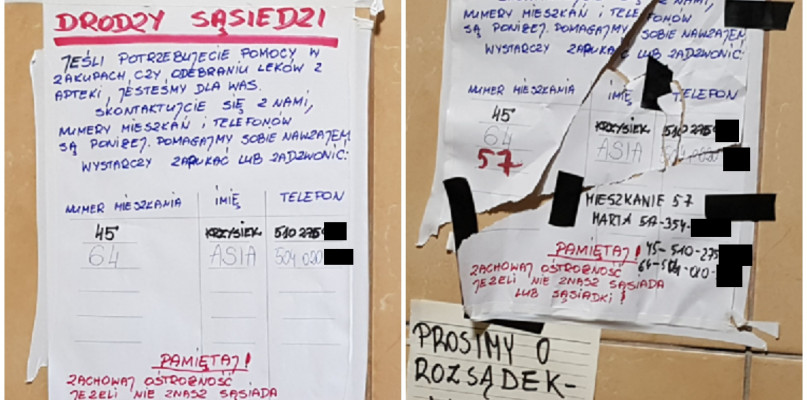 DRODZY SĄSIEDZI
JEŚLI POTRZEBUJECIE POMOCY W
ZAKUPACH, CZY ODEBRANIU LEKÓW Z
APTEKI, JESTEŚMY DLA WAS.
SKONTAKTUJCIE SIĘ Z NAMI,
NUMERY MIESZKAŃ I TELEFONÓW
SĄ PONIŻEJ. POMAGAJMY SOBIE NAWZAJEM
WYSTARCZY ZAPUKAĆ LUB ZADZWONIĆ:
NUMER MIESZKANIA IMIĘ TELEFON
45 KRZYSIEK 510 275
64 ASIA 504 020
PAMIĘTAJ!
ZACHOWAJ OSTROŻNOŚĆ
JEŻELI NIE ZNASZ SĄSIADA
SIĘ Z NAMI,
NUMERY MIESZKAŃ I TELEFONÓW
SĄ PONIŻEJ. POMAGAJMY SOBIE NAWZAJEM
WYSTARCZY ZAPUKAĆ LUB ZADZWONIĆ:
NUMER MIESZKANIA IMIĘ TELEFON
45 KRZYSIEK 510 275
64 ASIA
57
MIESZKANIE 57
MARTA
PAMIĘTAJ! 45-510-275
ZACHOWAJ OSTROŻNOŚĆ
JEŻELI NIE ZNASZ SĄSIADA
LUB SĄSIADKI!
PROSIMY O
ROZSĄDEK-